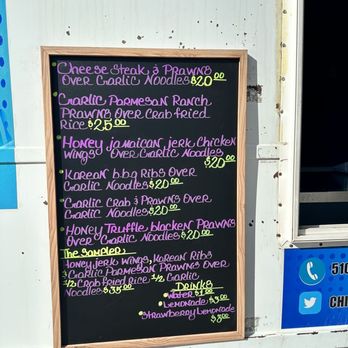 Cheese Steak & Prawns
Over Garlic Noodles $20.00
Garlic Parmesan Ranch
Prawns Over Crab fried
Rice $25.00
Honey Jamaican Jerk Chicken
Wings Over Garlic Noodles
$20.00
Korean b.b.q Ribs Over
Garlic Noodles $20.00
Garlic Crab & Prawns Over
Garlic Noodles $20.00
Honey Truffle blacken Prawns
Over Garlic Noodles $20.00
The Sampler:
Honey Jerk Wings, Korean Ribs
& Garlic Parmesan Prawns Over
1/2 Crab fried Rice 1/2 Garlic
Noodles $35.00
Drinks
Water $1.00
Lemonade $5.00
Strawberry Lemonade
510
CHE